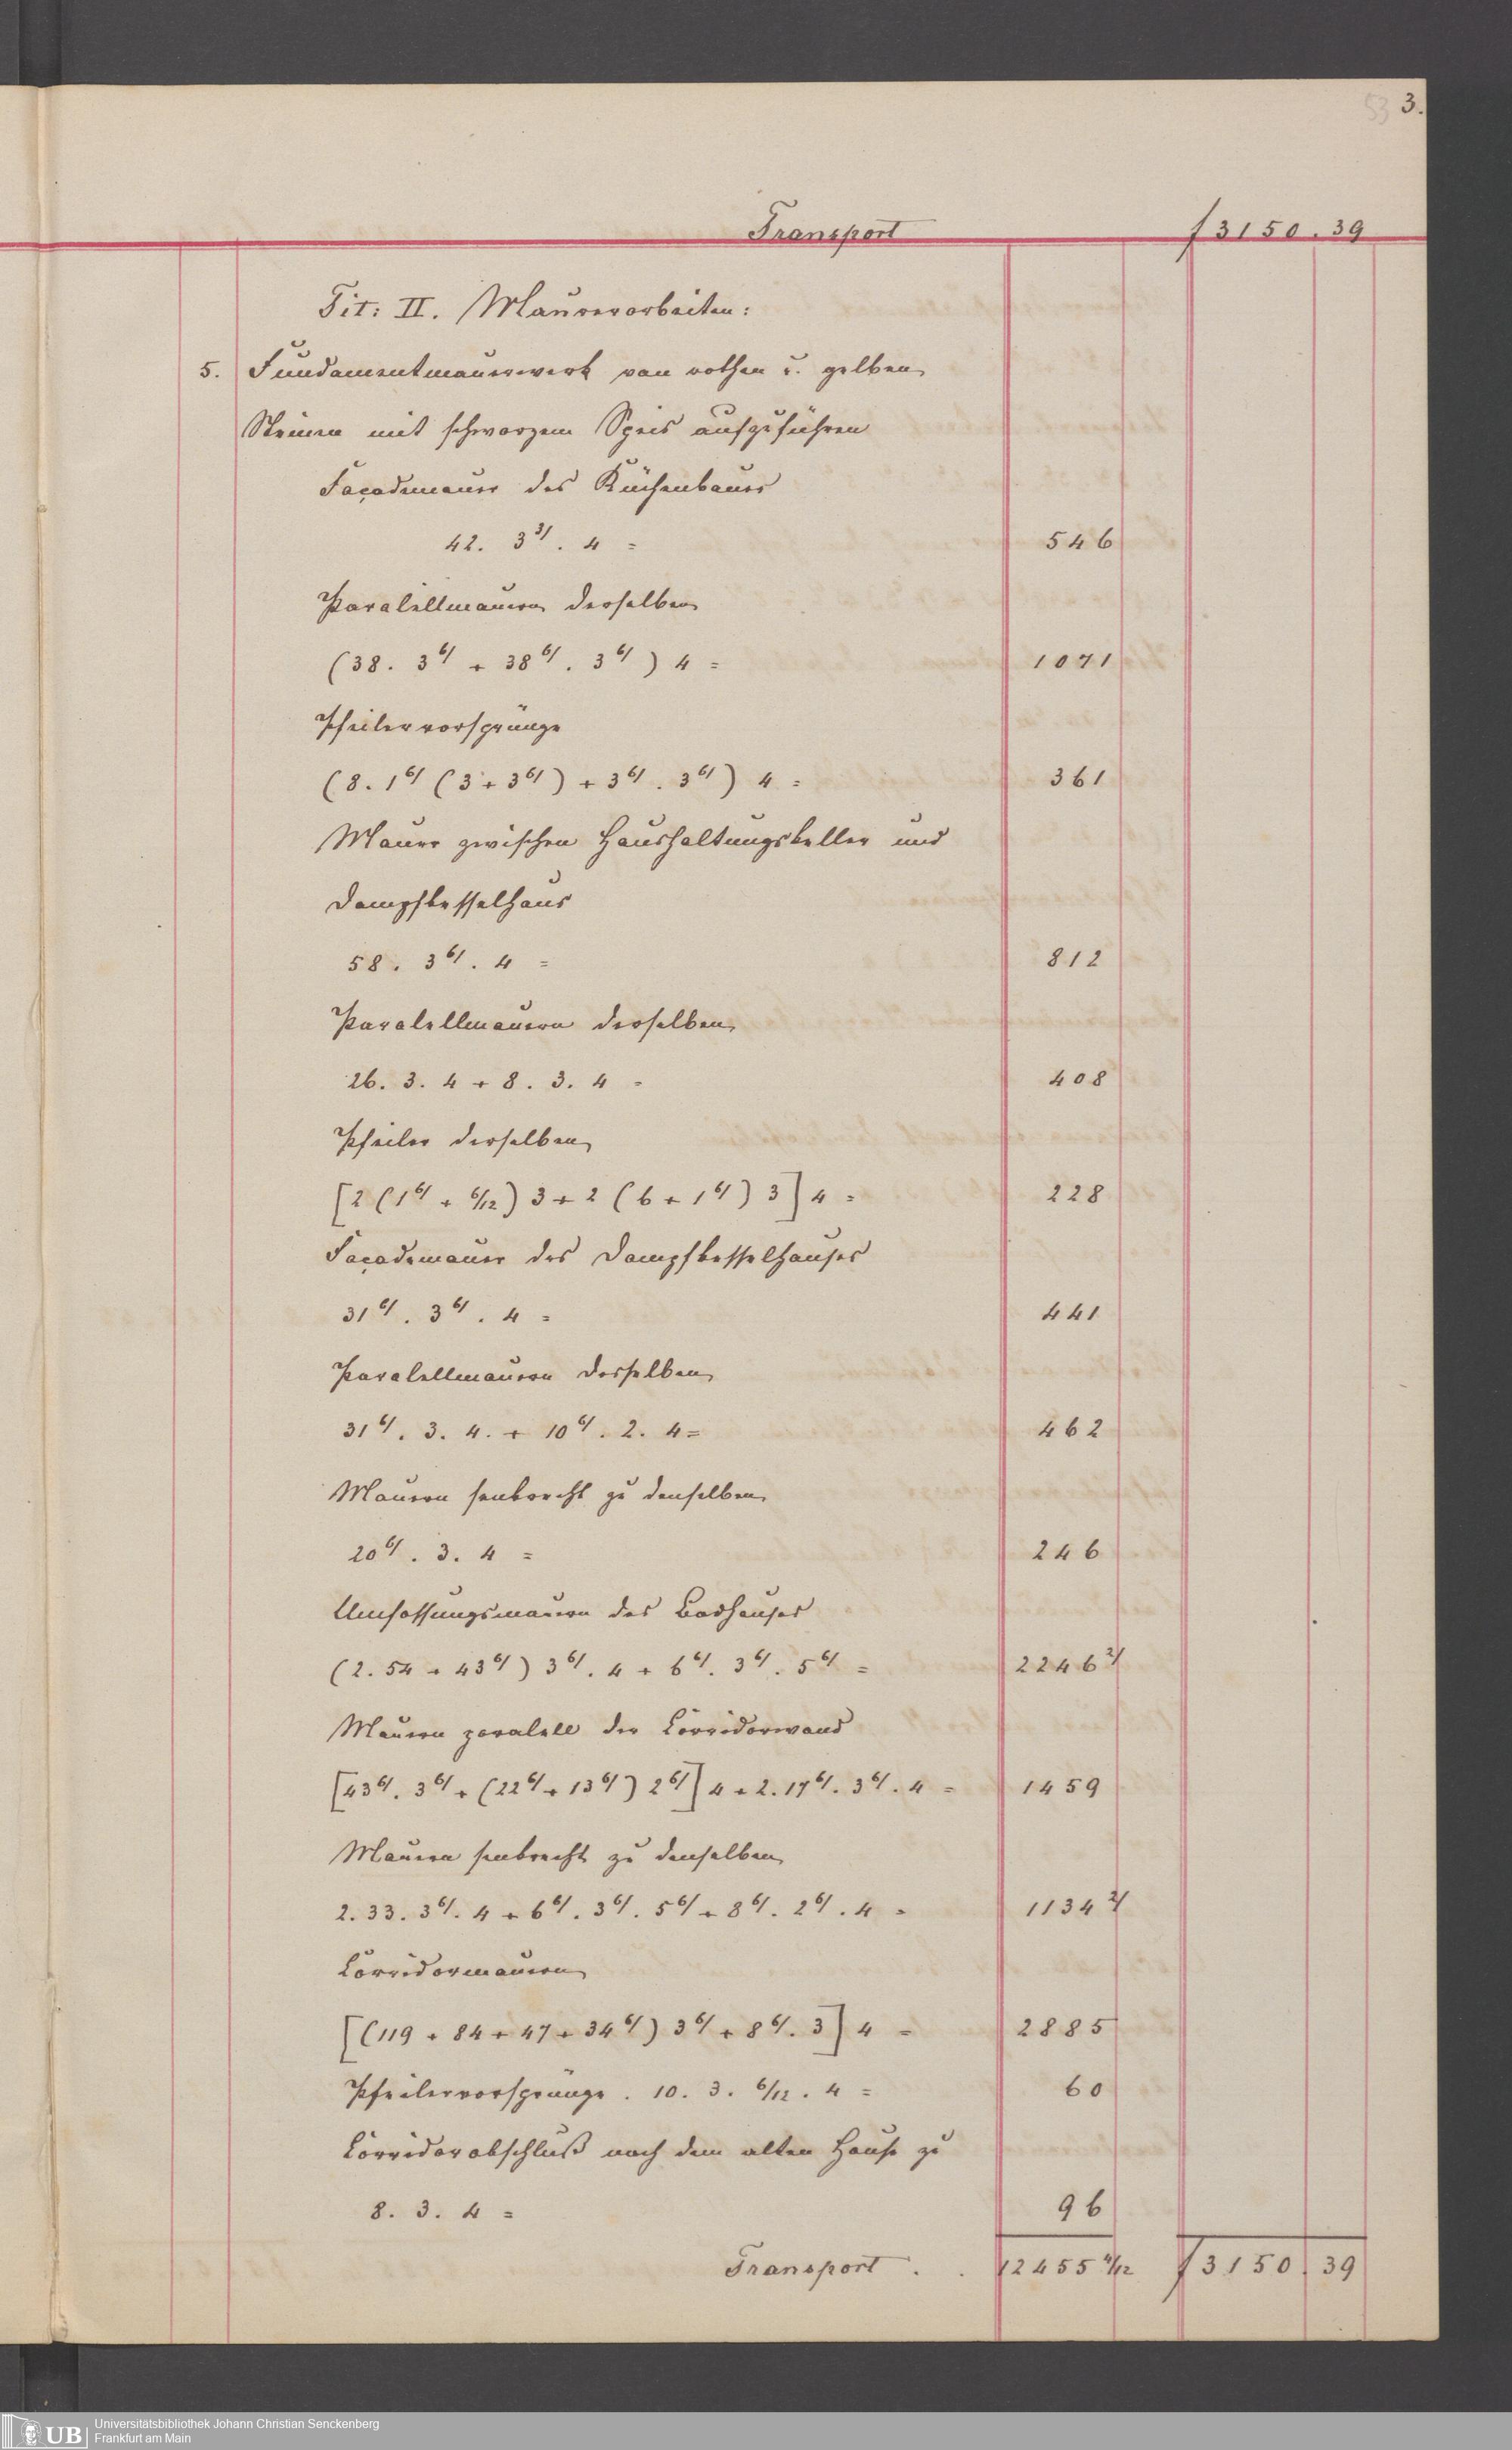 53 3.
Transport f 3150. 39
Tit: II. Maurerarbeiten:
5. Fundamentmauerwerk von rothen u. gelben
Steinen mit schwarzem Speis aufzuführen
Façademauer des Küchenbaues
42. 3³/. 4 = 546
Paralellmauern derselben
(38. 3⁶/ + 38⁶/. 3⁶/) 4 = 1071
Pfeilervorsprünge
(8. 1⁶/ (3 + 3⁶/) + 3⁶/. 3⁶/) 4 = 361
Mauer zwischen Haushaltungskeller und
Dampfkesselhaus
58. 3⁶/. 4 = 812
Paralellmauern derselben
26. 3. 4 + 8. 3. 4 = 408
Pfeiler derselben
[2 (1⁶/ + 6/12) 3 + 2 (6 + 1⁶/) 3] 4 = 228
Façademauer des Dampfkesselhauses
31⁶/. 3⁶/. 4 = 441
Paralellmauern desselben
31⁶/. 3. 4. + 10⁶/. 2. 4 = 462
Mauern senkrecht zu denselben
20⁶/. 3. 4 = 246
Umfassungsmauern des Badhauses
(2. 54 + 43⁶/) 3⁶/. 4 + 6⁶/. 3⁶/. 5⁶/ = 2246²/
Mauern paralell der Corridorwand
[43⁶/. 3⁶/ + (22⁶/ + 13⁶/) 2⁶/] 4 + 2. 17⁶/. 3⁶/. 4 = 1459
Mauern senkrecht zu denselben
2. 33. 3⁶/. 4 + 6⁶/. 3⁶/. 5⁶/ + 8⁶/. 2⁶/. 4 = 1134²/
Corridormauern
[(119 + 84 + 47 + 34⁶/) 3⁶/ + 8⁶/. 3] 4 = 2885
Pfeilervorsprünge. 10. 3. 6/12. 4 = 60
Corridorabschluß nach dem alten Hause zu
8. 3. 4 = 96
Transport . . 12455 4/12 f 3150. 39
UB Universitätsbibliothek Johann Christian Senckenberg
Frankfurt am Main